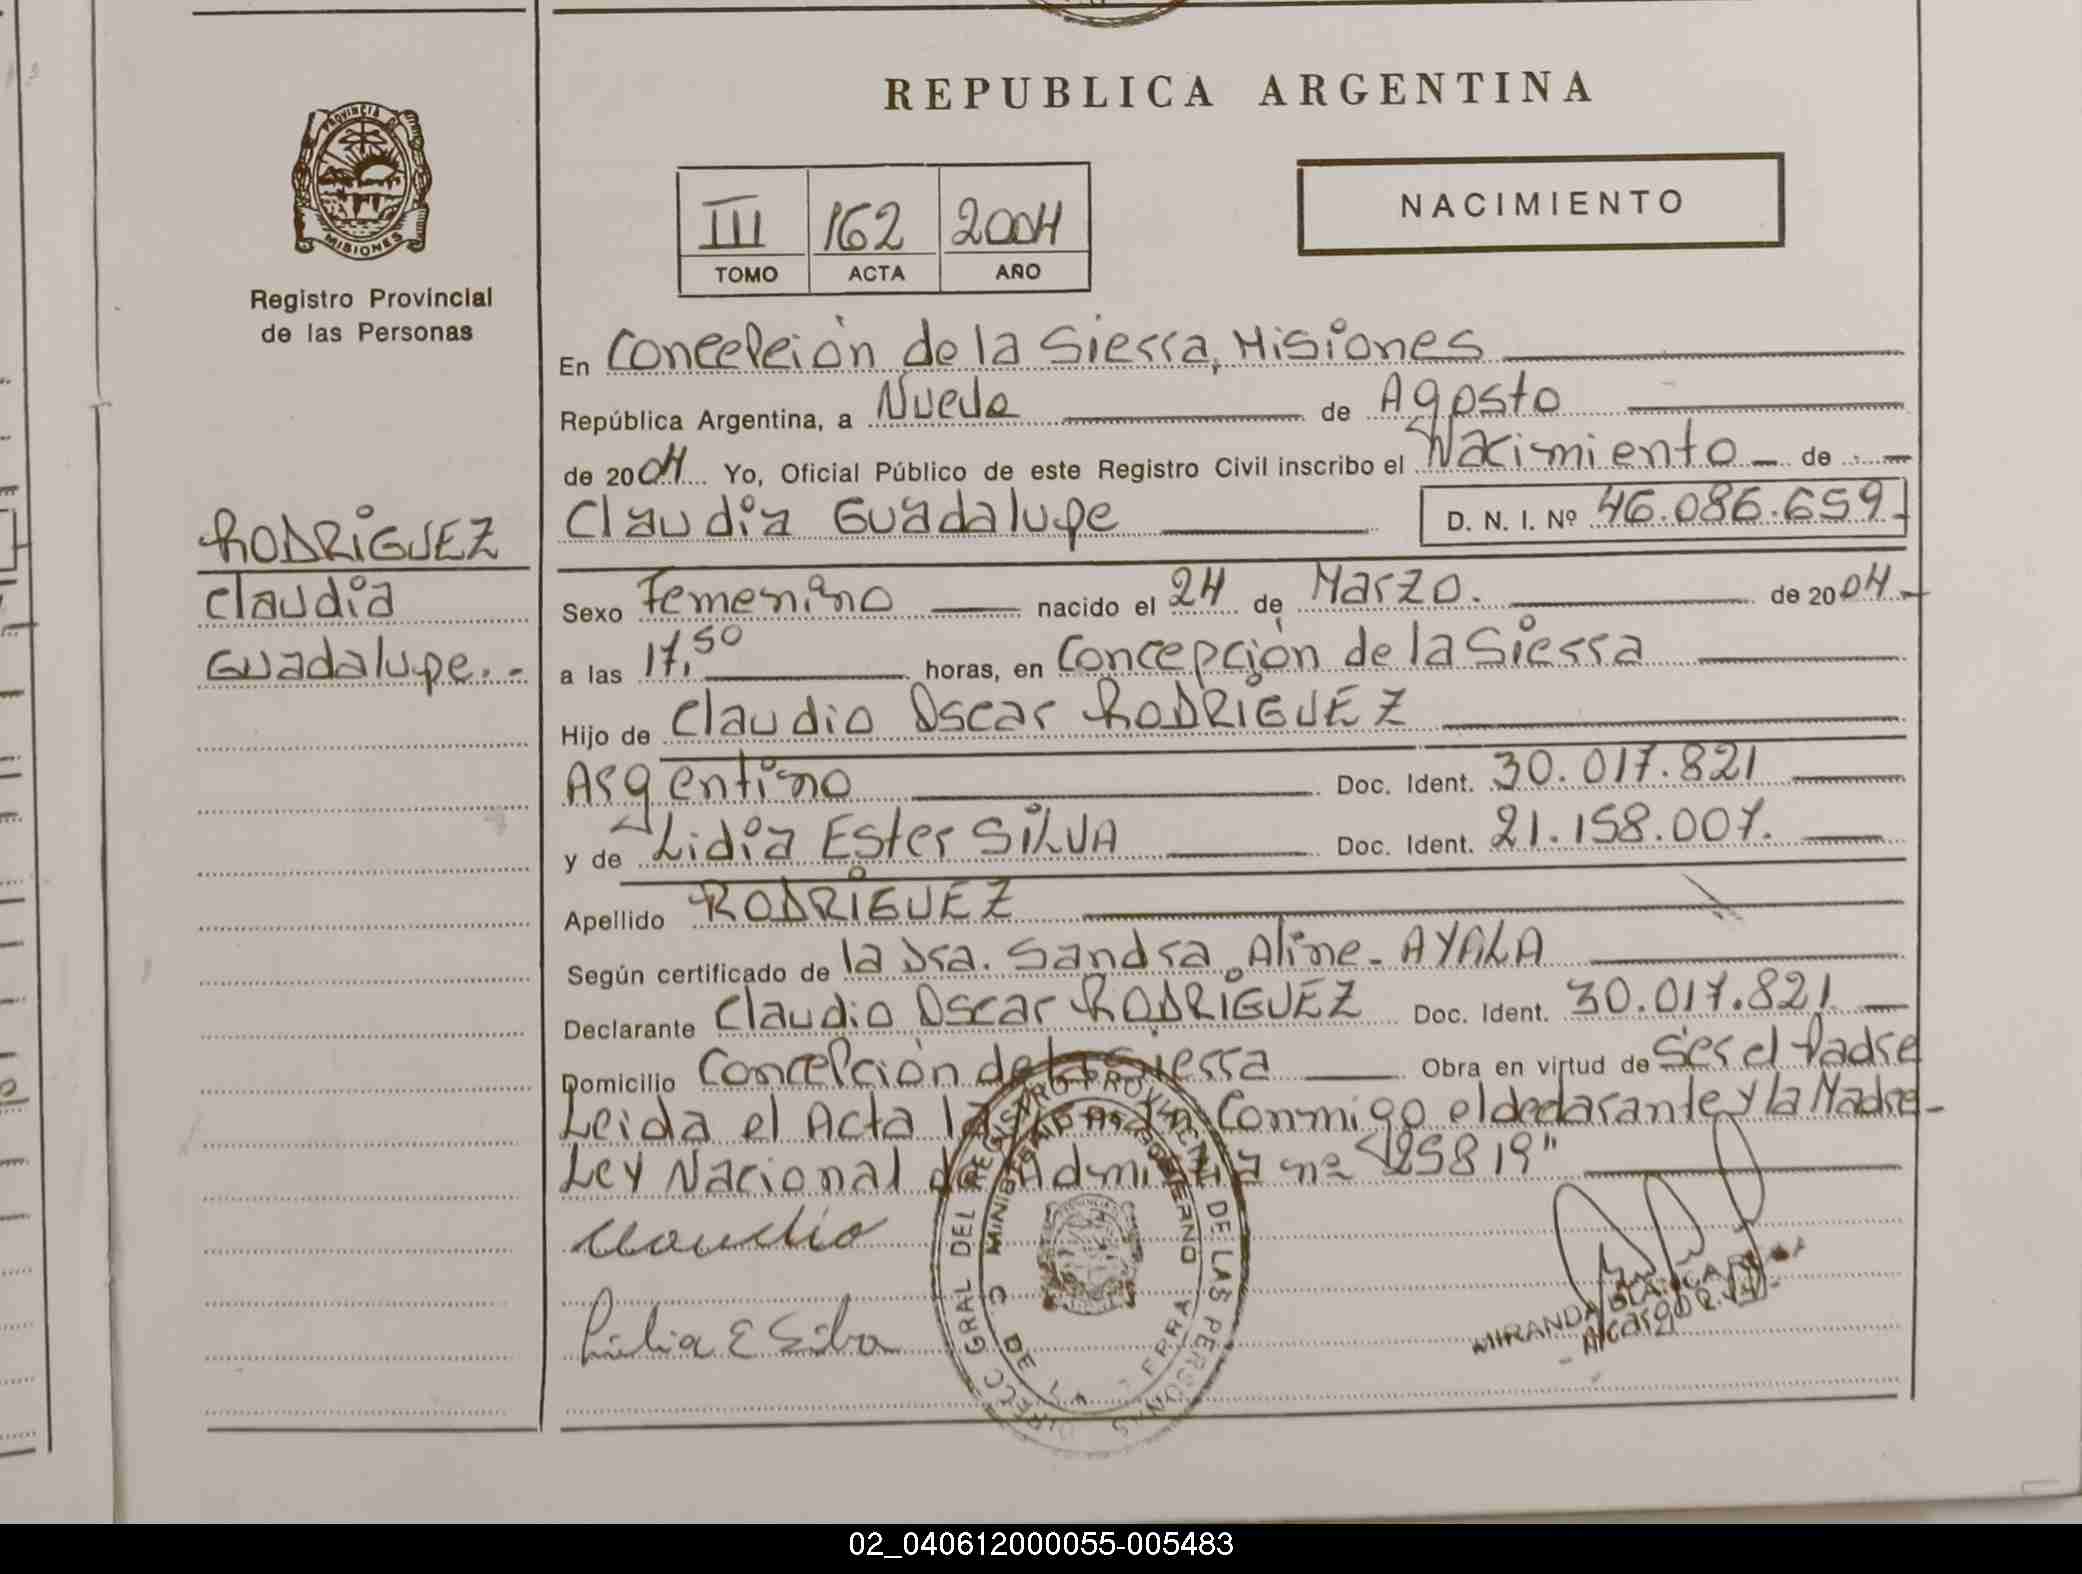 REPUBLICA ARGENTINA
PROVINCIA DE MISIONES
Registro Provincial
de las Personas
III 162 2004
TOMO ACTA AÑO
NACIMIENTO
En Concepción de la Sierra, Misiones
República Argentina, a Nueve de Agosto
de 2004 Yo, Oficial Público de este Registro Civil inscribo el Nacimiento de
Claudia Guadalupe D. N. I. Nº 46.086.659
RODRIGUEZ
Claudia
Guadalupe.-
Sexo Femenino nacido el 24 de Marzo. de 2004
a las 17,50 horas, en Concepción de la Sierra
Hijo de Claudio Oscar RODRIGUEZ
Argentino Doc. Ident. 30.017.821
y de Lidia Ester SILVA Doc. Ident. 21.158.007.
Apellido RODRIGUEZ
Según certificado de la Dra. Sandra Aline - AYALA
Declarante Claudio Oscar RODRIGUEZ Doc. Ident. 30.017.821
Domicilio Concepción de la Sierra Obra en virtud de Ser el Padre
Leida el Acta la Conmigo el declarante y la Madre-
Ley Nacional de nº "25819"
Claudio
Lidia E Silva
DIRECC GRAL DEL REGISTRO PROVINCIAL DE LAS PERSONAS
MINISTERIO DE GOBIERNO
MIRANDA
A/cargo
02_040612000055-005483